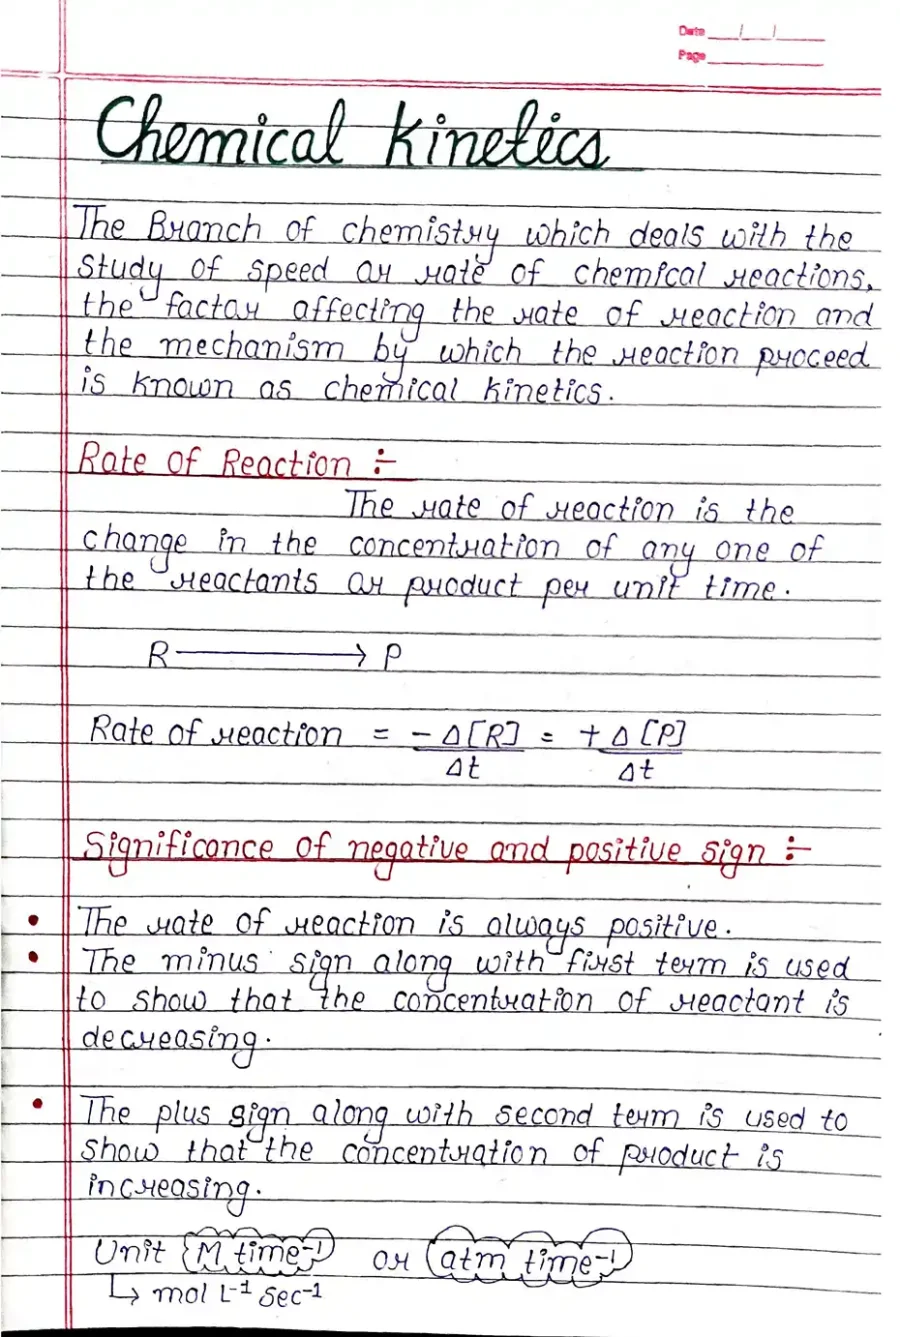 Date / /
Page
Chemical Kinetics
The Branch of chemistry which deals with the
study of speed or rate of chemical reactions,
the factor affecting the rate of reaction and
the mechanism by which the reaction proceed
is known as chemical kinetics.
Rate of Reaction :-
The rate of reaction is the
change in the concentration of any one of
the reactants or product per unit time.
R ⟶ P
Rate of reaction = - Δ[R] = + Δ[P]
Δt Δt
Significance of negative and positive sign :-
• The rate of reaction is always positive.
• The minus sign along with first term is used
to show that the concentration of reactant is
decreasing.
• The plus sign along with second term is used to
show that the concentration of product is
increasing.
Unit M time⁻¹ or atm time⁻¹
↳ mol L⁻¹ sec⁻¹